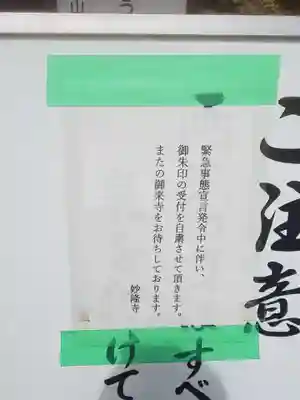 山 う
ご注意
緊急事態宣言発令中に伴い、
御朱印の受付を自粛させて頂きます。
またの御来寺をお待ちしております。
妙隆寺
すべ
けて